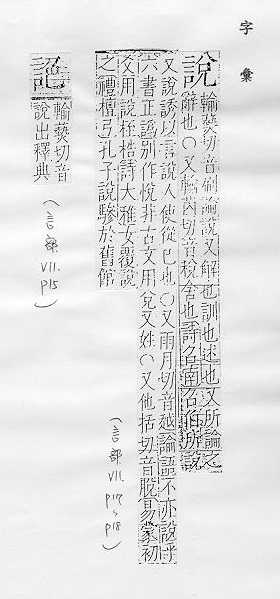 字彙
說
輸爇切音刷論說又解也訓也述也又所論之
辭也〇又輸芮切音稅舍也詩召南召伯所說
又說誘以言說人使從己也〇又雨月切音越論語不亦說乎
六書正譌別作悅非古文用兌又姓〇又他括切音脫易蒙初
爻用說桎梏詩大雅女覆說
之禮檀弓孔子說驂於舊館
(言部 VII. p17~p18)
輸爇切音
說出釋典
(言部 VII. p15)